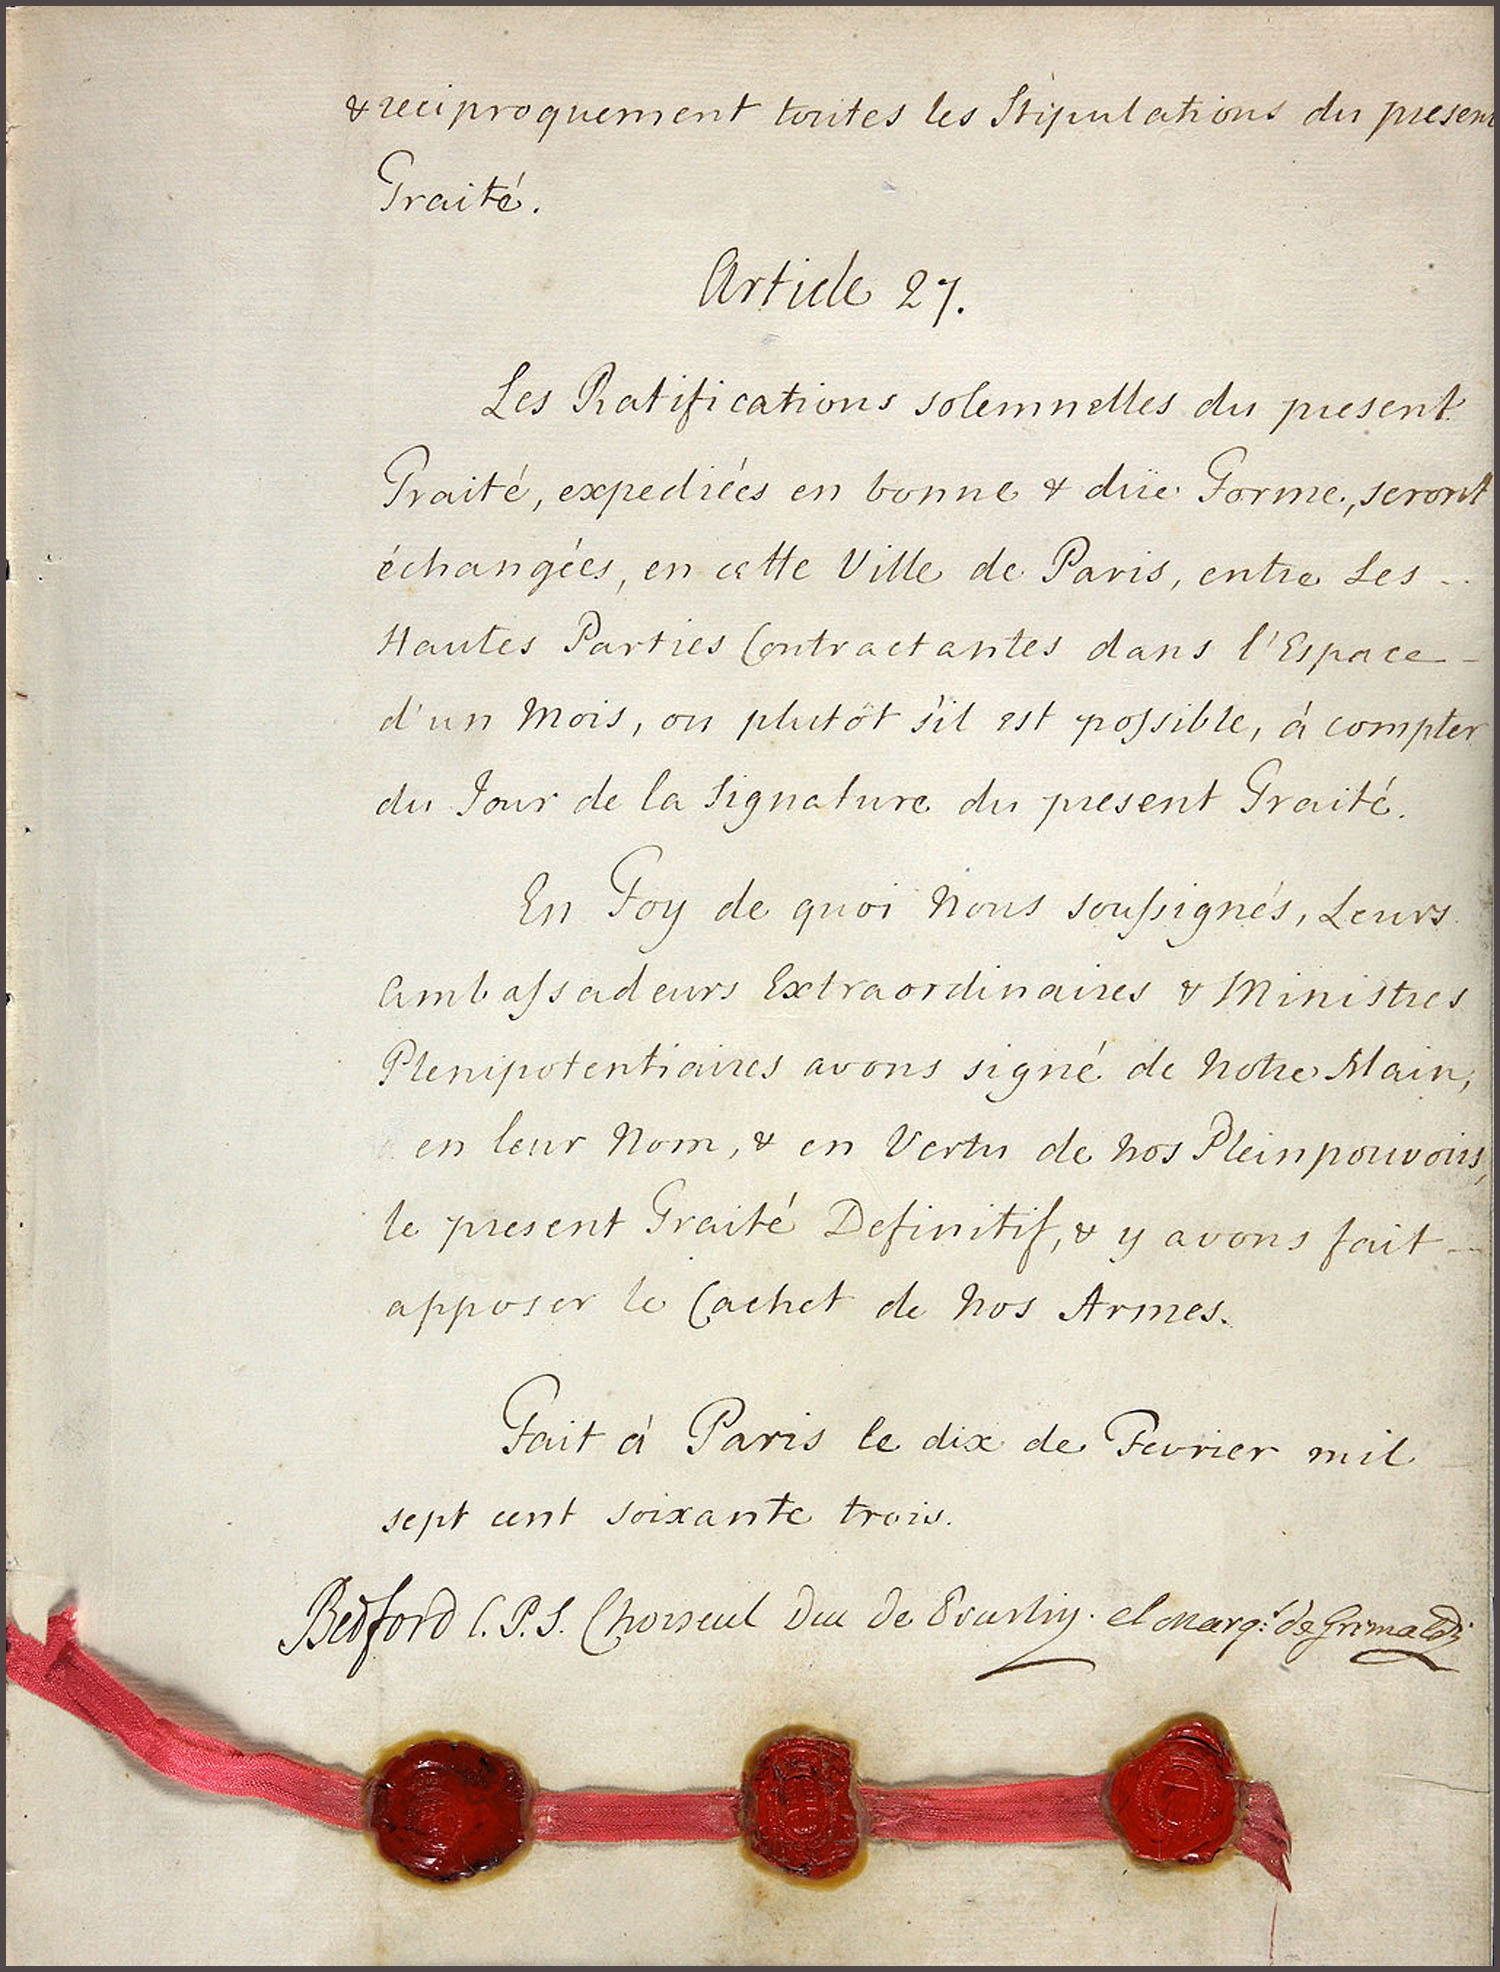 & reciproquement toutes les Stipulations du present
Traité.
Article 27.
Les Ratifications solemnelles du present
Traité, expediées en bonne & düe Forme, seront
échangées, en cette Ville de Paris, entre Les
Hautes Parties Contractantes dans l'Espace
d'un Mois, ou plutôt s'il est possible, à compter
du Jour de la Signature du present Traité.
En Foy de quoi Nous soussignés, Leurs
Ambassadeurs Extraordinaires & Ministres
Plenipotentiaires avons signé de Notre Main,
en leur Nom, & en Vertu de nos Pleinpouvoirs,
le present Traité Definitif, & y avons fait
apposer le Cachet de Nos Armes.
Fait à Paris le dix de Fevrier mil
sept cent soixante trois.
Bedford C.P.S. Choiseul Duc de Praslin. el Marq.s de Grimaldi